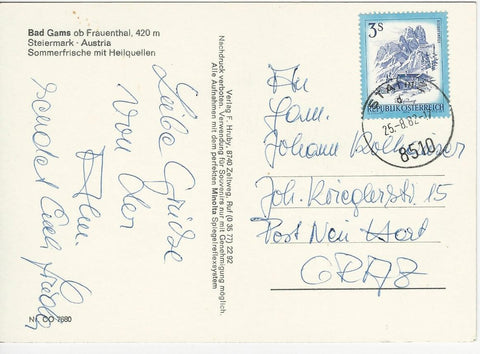 Bad Gams ob Frauenthal, 420 m
Steiermark - Austria
Sommerfrische mit Heilquellen
Liebe Grüße
von der
Alm.
sendet Euch
Nr. OO 7680
Verlag F. Hruby, 8740 Zeltweg, Ruf (0 35 77) 22 92
Nachdruck verboten. Verwendung für Souvenirs nur mit Genehmigung möglich.
Alle Aufnahmen mit dem perfekten Minolta Spiegelreflexsystem
3s
REPUBLIK ÖSTERREICH
25.-8.82-17
8510
An
Fam.
Johann
Joh. Krieglerst. 15
Post Neu Hart
GRAZ